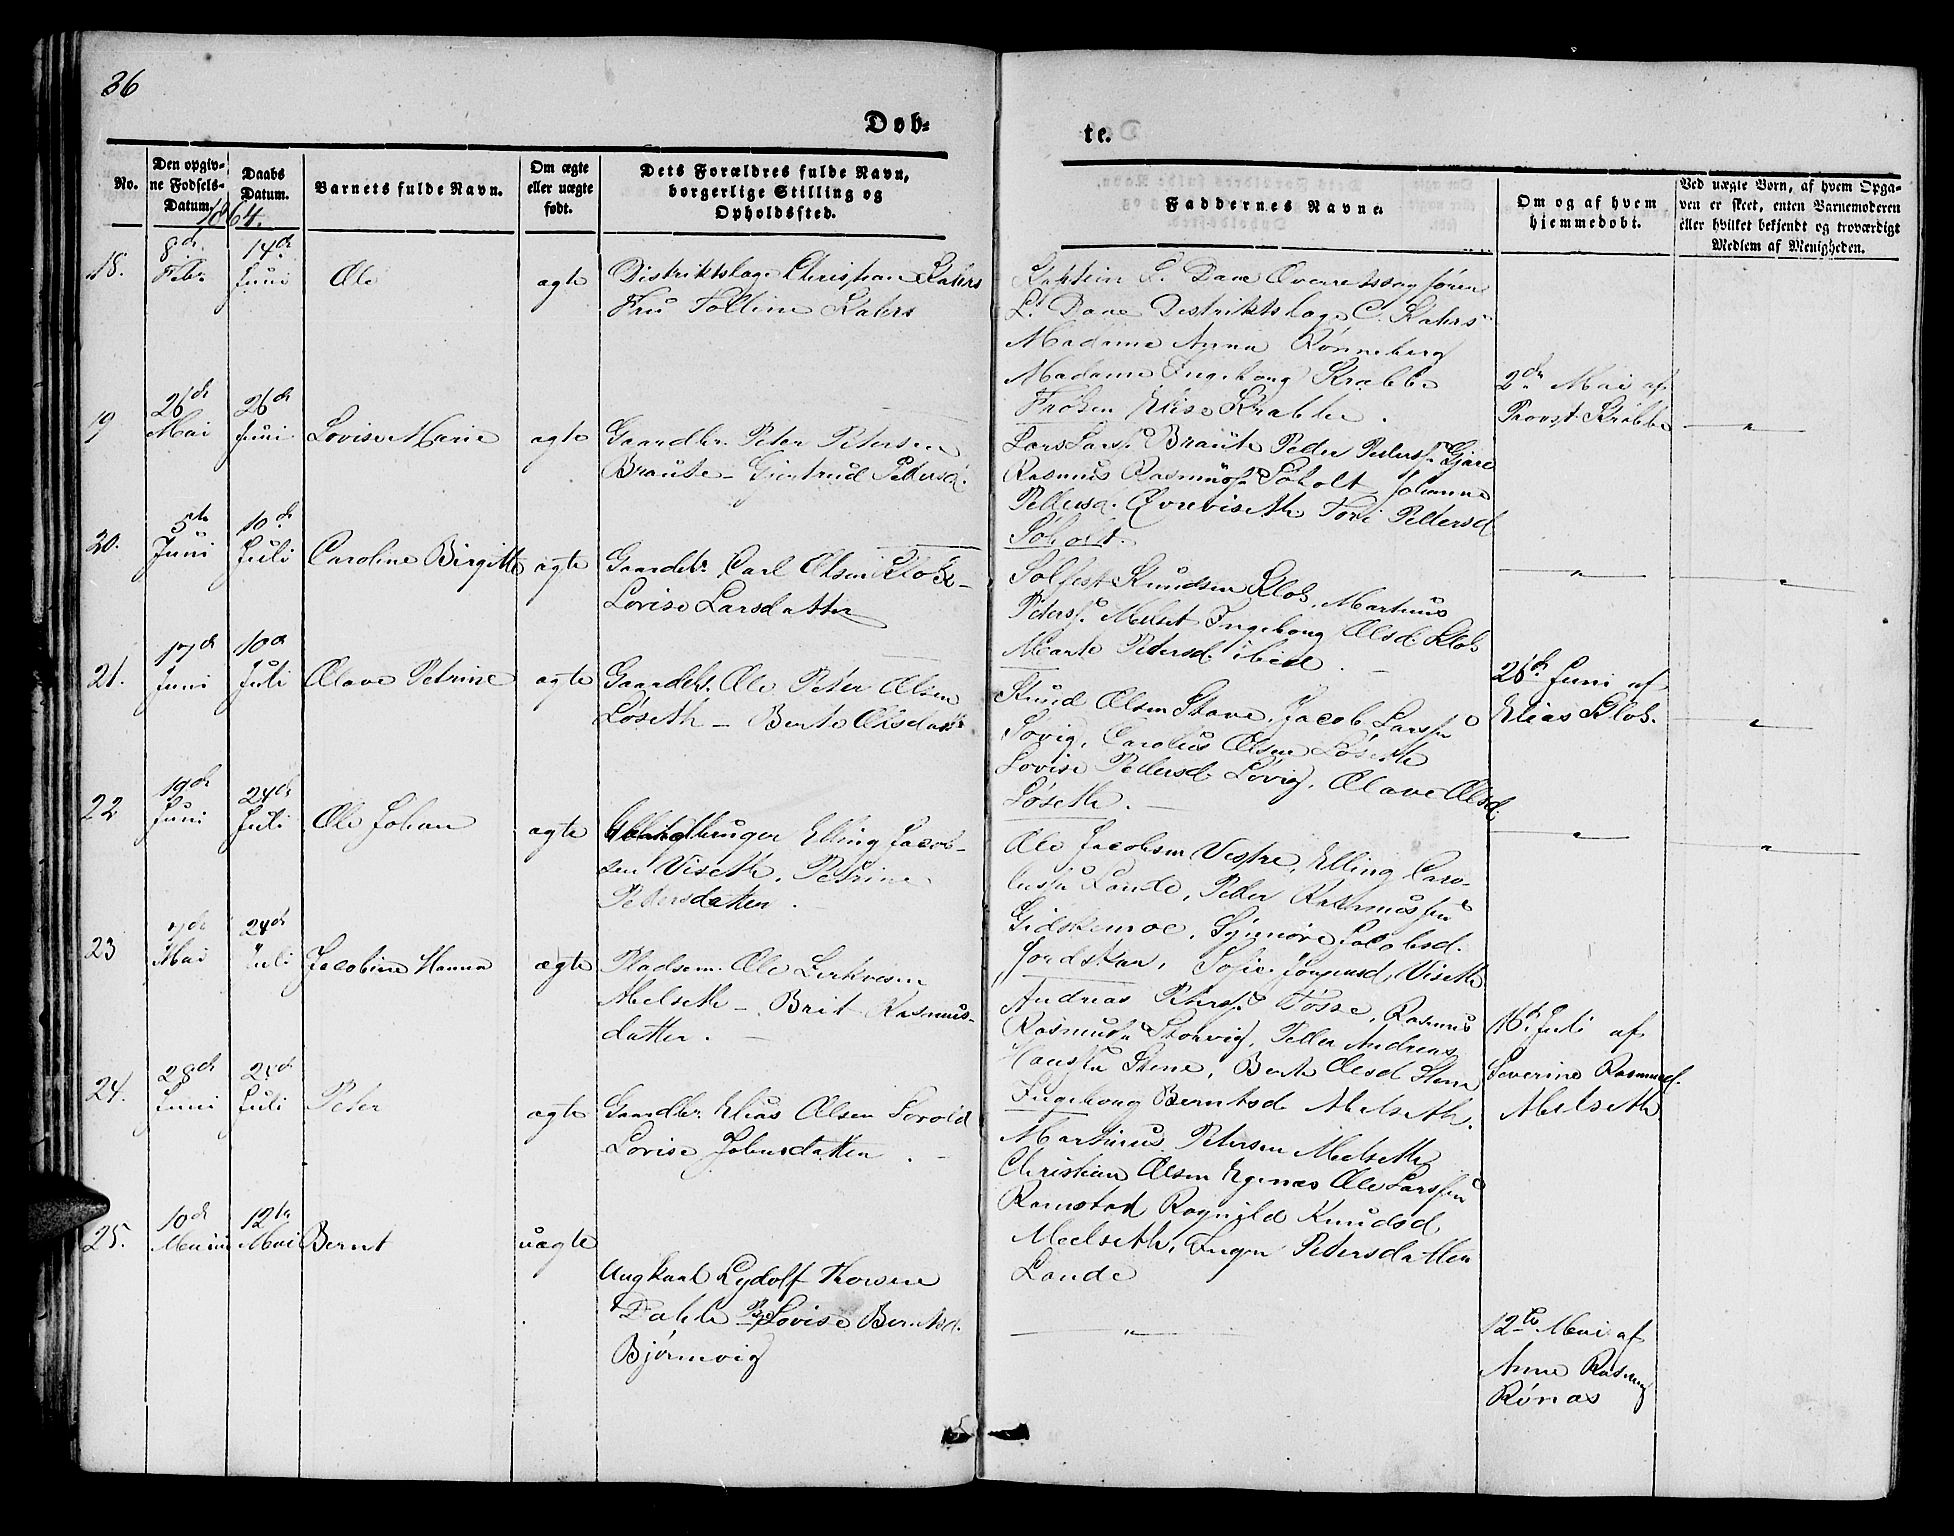 86
Døb=
te.
No.
Den opgiv-
ne Fødsels-
Datum.
Daabs
Datum.
Barnets fulde Navn.
Om ægte
eller uægte
født.
Dets Forældres fulde Navn,
borgerlige Stilling og
Opholdssted.
Faddernes Navne.
Om og af hvem
hjemmedøbt.
Ved uægte Børn, af hvem Opga-
ven er skeet, enten Barnemoderen
eller hvilket bekjendt og troværdigt
Medlem af Menigheden.
1864.
18.
8de
Febr
14de
Juni
Ole
ægte
Distriktslæge Christian
Fru
Kaptein L. Daae
Lt Daae Distriktslæge C.
Madame Anna Rønneberg
Madame Ingeborg Krabbe
Frøken Elise Krabbe.
2de Mai af
Provst Krabbe
19
26de
Mai
26de
Juni
Lovise Marie
ægte
Gaardbr. Peter Petersen
Braute - Gjertrud Pedersd.
Lars Lars. Braute Peder Peders.
Rasmus Rasmus. Søholt Johanne
Pedersd. Øvreviseth Pedersd
Søholt.
20.
5te
Juni
10de
Juli
Caroline Birgitte
ægte
Gaardbr. Carl Olsen Klok -
Lovise Larsdatter
Solfest Knudsen Klok. Martinus
Peters. Melset Ingeborg Olsd. Klok
Marte Petersd. ibid.
21.
17de
Juni
10de
Juli
Olave Petrine
ægte
Gaardbr. Ole Peter Olsen
Løseth - Berte Olsdatter
Knud Olsen Stave, Jacob Larssen
Søvig, Carolus Olsen Løseth
Lovise Pedersd. Søvig, Olave Olsd.
Løseth. -
26de Juni af
Elias Klok.
22
19de
Juni
24de
Juli
Ole Johan
ægte
Elling Jacob-
sen Viseth, Petrine
Pedersdatter. -
Ole Jacobsen Vestre, Elling Caro-
lussen Lande, Peder Rasmussen
Gidskemoe, Synnøve Jacobsd.
Jordskar, Sofie Jørgensd. Viseth
23
7de
Mai
24de
Juli
Jacobine Hanna
ægte
Pladsem. Ole
Abelseth - Brit Rasmus-
datter. -
Andreas Peters. Fosse, Rasmus
Rasmuss. Storvig, Peder Andreas
Hanssen Stene, Berte Olsd Stene
Ingeborg Berntsd. Abelseth.
16de Juli af
Severine Rasmusd.
Abelseth
24.
28de
Juni
24de
Juli
Peter
ægte
Gaardbr. Elias Olsen
Lovise Johnsdatter. -
Martinus Petersen Melseth
Christian Olsen Ole Larssen
Ramstad Ragnild Knudsd
Melseth, Inger Petersdatter
Lande
25.
10de
12te
Mai
Bernt
uægte
Ungkaal Lydolf Thorsen
Dahle Pige Lovise Berntsd.
Bjørnevig
12te Mai af
Anne Rasmus
Rønæs